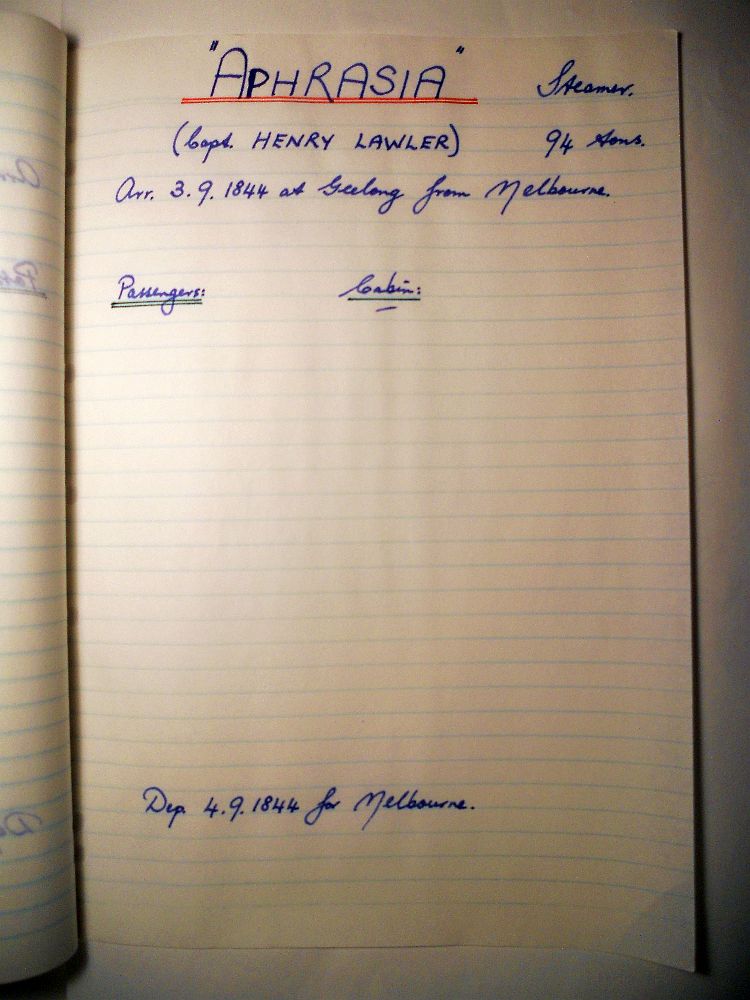 "APHRASIA" Steamer.
(Capt. HENRY LAWLER) 94 tons.
Arr. 3.9.1844 at Geelong from Melbourne.
Passengers: Cabin:
Dep. 4.9.1844 for Melbourne.